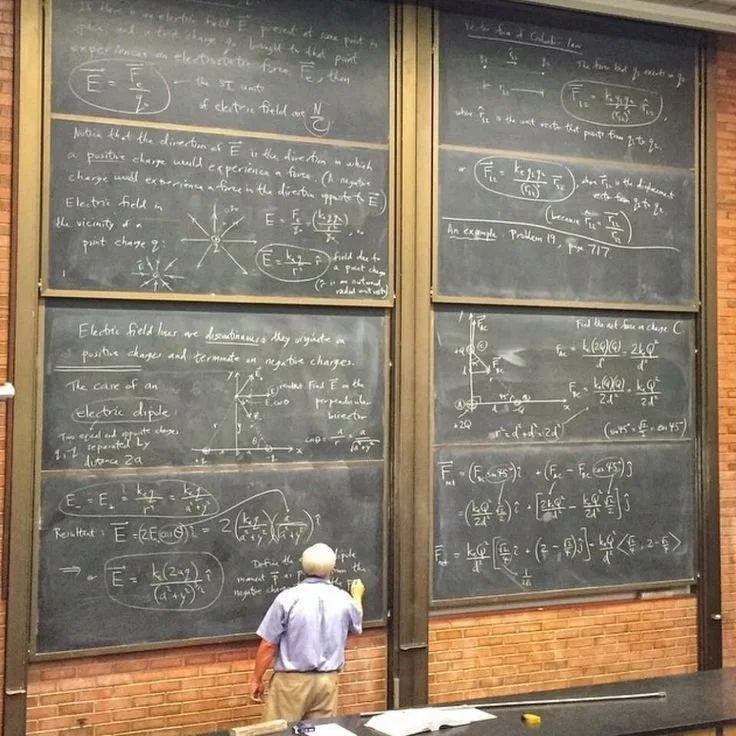 If there is an electric field E⃗ present at some point in
space and a test charge q₀ brought to that point
experiences an electrostatic force F⃗ₑ, then
E⃗ = F⃗ₑ/q₀ — the SI units
of electric field are N/C
Notice that the direction of E⃗ is the direction in which
a positive charge would experience a force. (A negative
charge would experience a force in the direction opposite to E⃗)
Electric field in
the vicinity of a
point charge q:
E = Fₑ/q₀ =
E⃗ = kₑq/r² r̂
field due to
a point charge
(r̂ is an outward
radial unit vector)
Electric field lines are discontinuous: they originate on
positive charges and terminate on negative charges.
The case of an
electric dipole:
Two equal and opposite charges
separated by
distance 2a
Find E⃗ on the
perpendicular
bisector
cosθ = a/r = a/√(a²+y²)
E₋ = E₊ = kₑq/r² = kₑq/(a²+y²)
Resultant: E⃗ = (2E₊cosθ)î = 2(kₑq/(a²+y²))
⇒ or E⃗ = kₑ(2aq)/(a²+y²)^(3/2) î
Define the dipole
moment p⃗ from the
negative charge
Vector form of Coulomb's law
r̂₁₂
q₁ q₂
The force that q₁ exerts on q₂
F⃗₁₂ = kₑq₁q₂/(r₁₂)² r̂₁₂,
where r̂₁₂ is the unit vector that points from q₁ to q₂.
or F⃗₁₂ = kₑq₁q₂/(r₁₂)³ r⃗₁₂, where r⃗₁₂ is the displacement
vector from q₁ to q₂.
(because r̂₁₂ = r⃗₁₂/r₁₂)
An example. Problem 19, page 717.
Find the net force on charge C
F_AC = k(2Q)(Q)/d² = 2kQ²/d²
F_BC = k(Q)(Q)/2d² = kQ²/2d²
+2Q
r² = d²+d² = 2d²
(sin45° = √2/2 = cos45°)
F⃗net = (F_BC sin45°)î + (F_AC − F_BC cos45°)ĵ
= (kQ²/2d² √2/2)î + [2kQ²/d² − kQ²/2d² √2/2]ĵ
F⃗net = kQ²/d² [√2/4 î + (2 − √2/4)ĵ] = kQ²/d² <√2/4, 2 − √2/4>